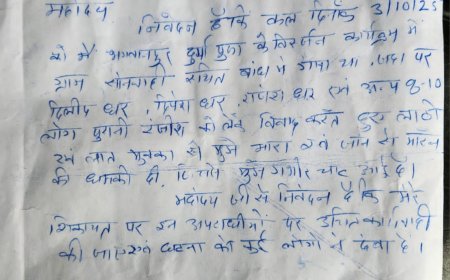 महोदय
निवेदन है कि कल दिनांक 3/10/25
को मैं दुर्गा पुजा के विसर्जन कार्यक्रम में
ग्राम स्थित बांध में आया था। जहां पर
दिलीप धर, धर, धर एवं अन्य 8-10
लोग पुरानी रंजीश को लेके विवाद करते हुए लाठी
एवं लात मुक्का से मुझे मारा एवं जान से मारने
की धमकी दी, मुझे गंभीर चोट आई है।
महोदय जी से निवेदन है कि मेरे
शिकायत पर इन अपराधीयों पर उचित कार्यवाही
की जाए एवं घटना को कई लोगो ने देखा है।